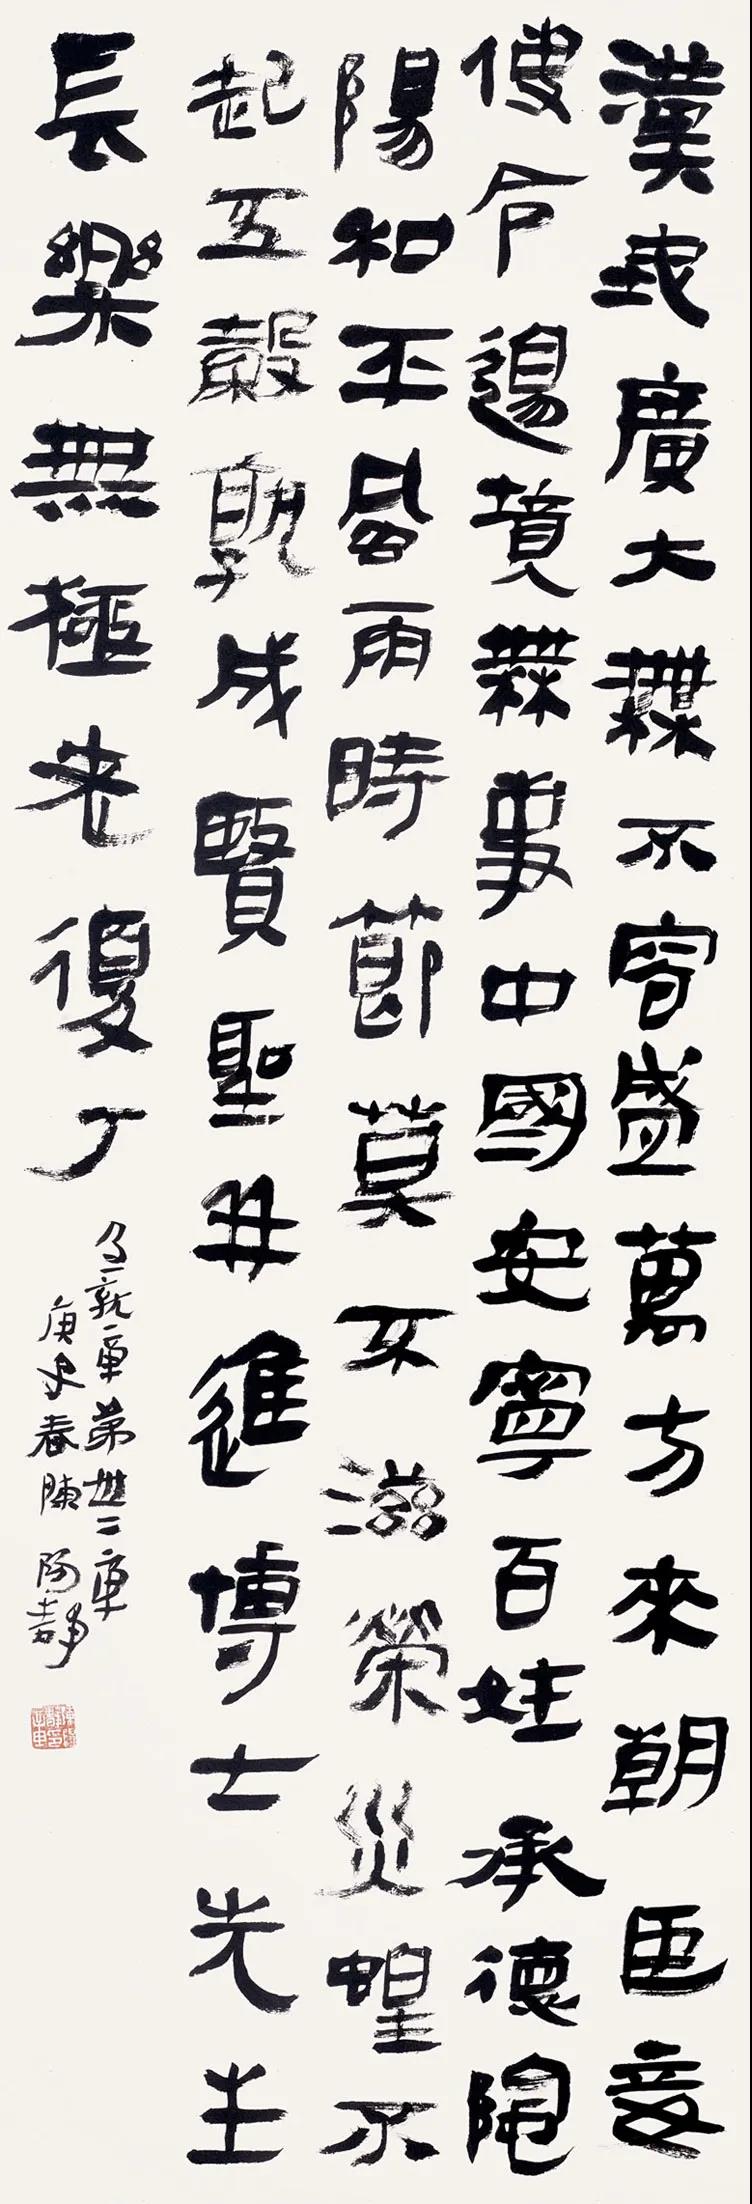 漢地廣大無不容盛萬方來朝臣妾
使令邊境無事中國安寧百姓承德陰
陽和平風雨時節莫不滋榮災蝗不
起五穀孰成賢聖並進博士先生
長樂無極老復丁
急就章第卅二章
庚春陳陽靜